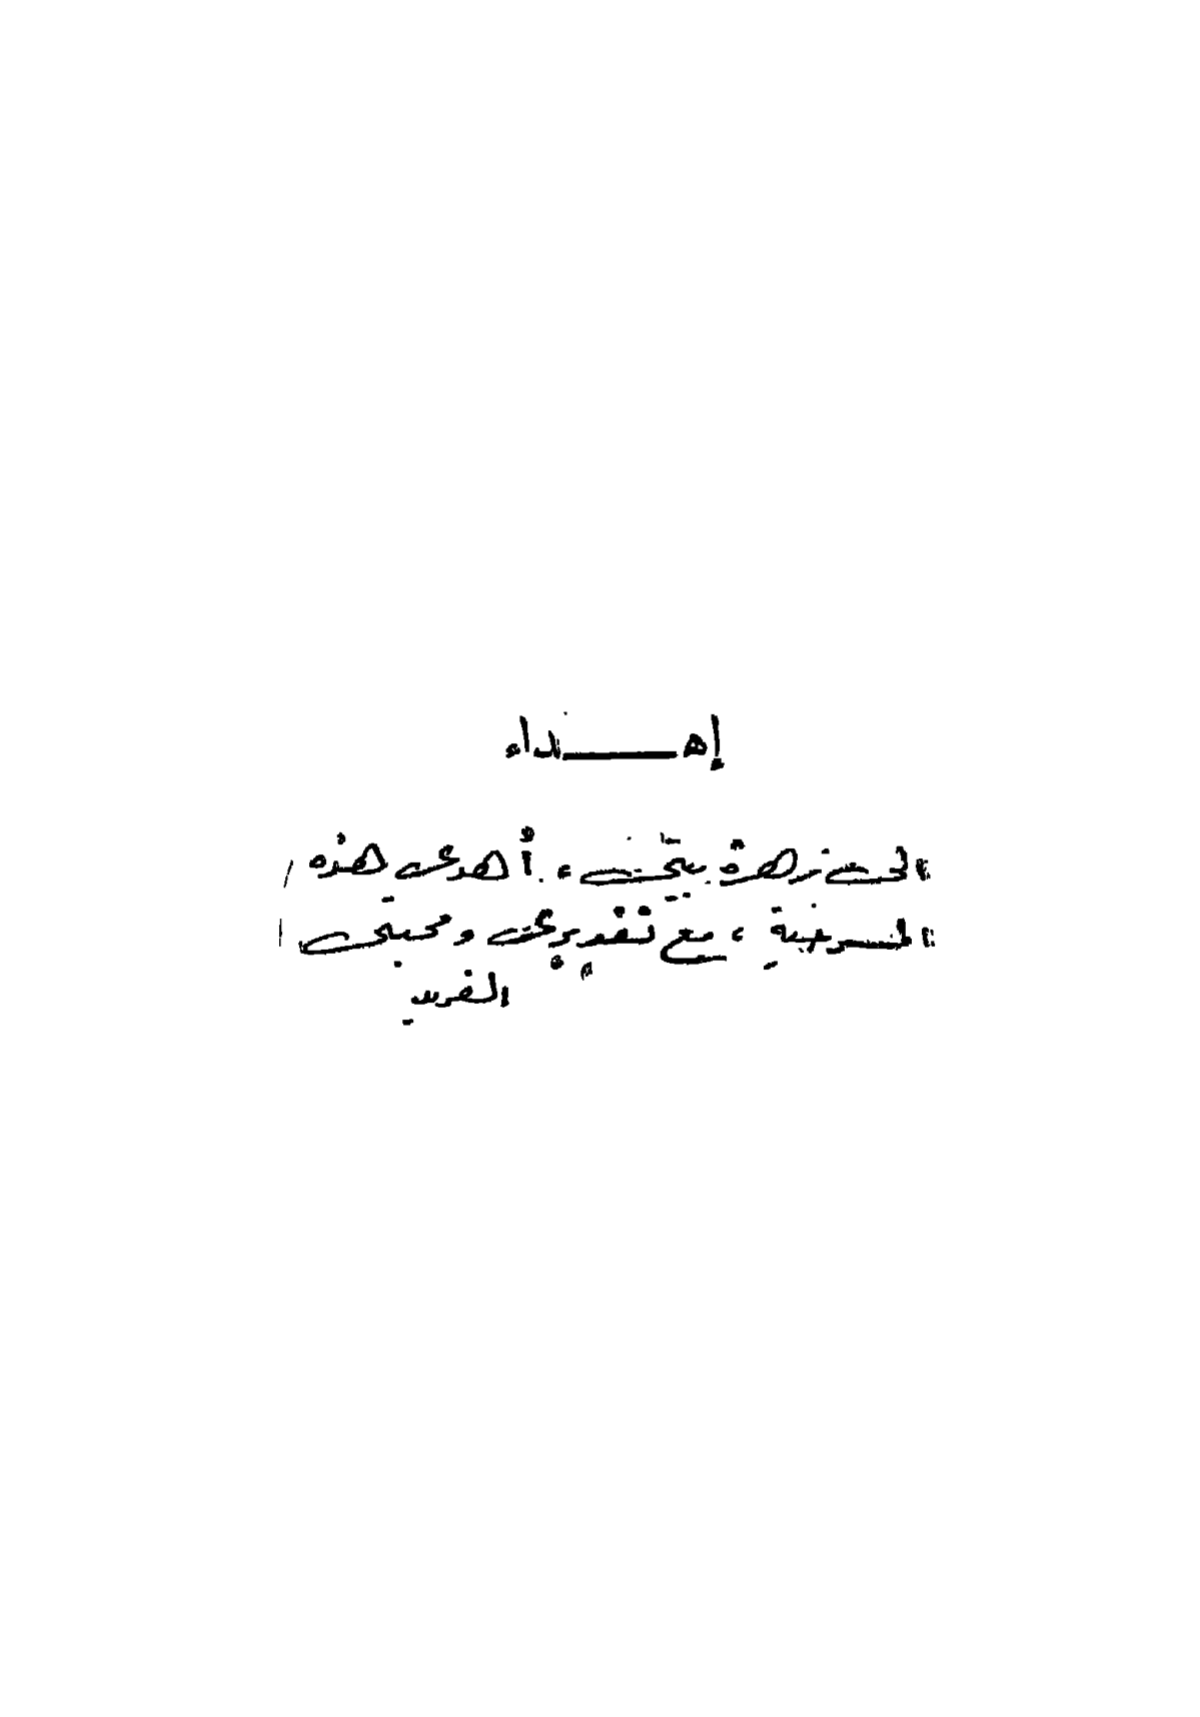 إهــــداء
إلى زهرة بيتى، أهدى هذه
المسرحية، مع تقديرى ومحبتى
الفريد